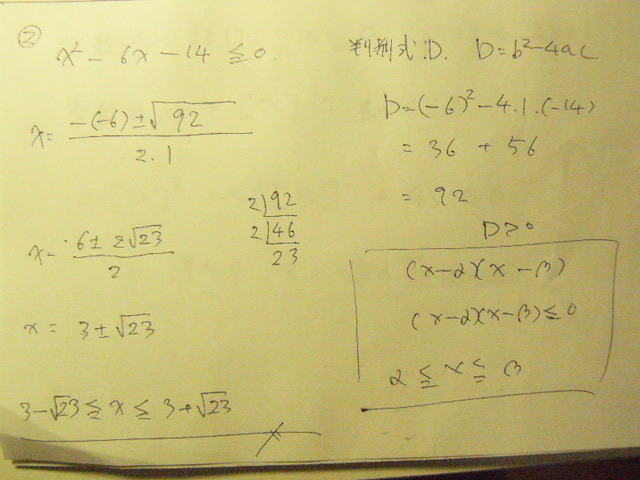 ②
x² - 6x - 14 ≦ 0
x = (-(-6) ± √92) / (2・1)
x = (6 ± 2√23) / 2
x = 3 ± √23
3-√23 ≦ x ≦ 3+√23
2)92
2)46
23
判別式:D. D=b²-4ac
D=(-6)²-4・1・(-14)
= 36 + 56
= 92
D>0
(x-α)(x-β)
(x-α)(x-β)≦0
α ≦ x ≦ β